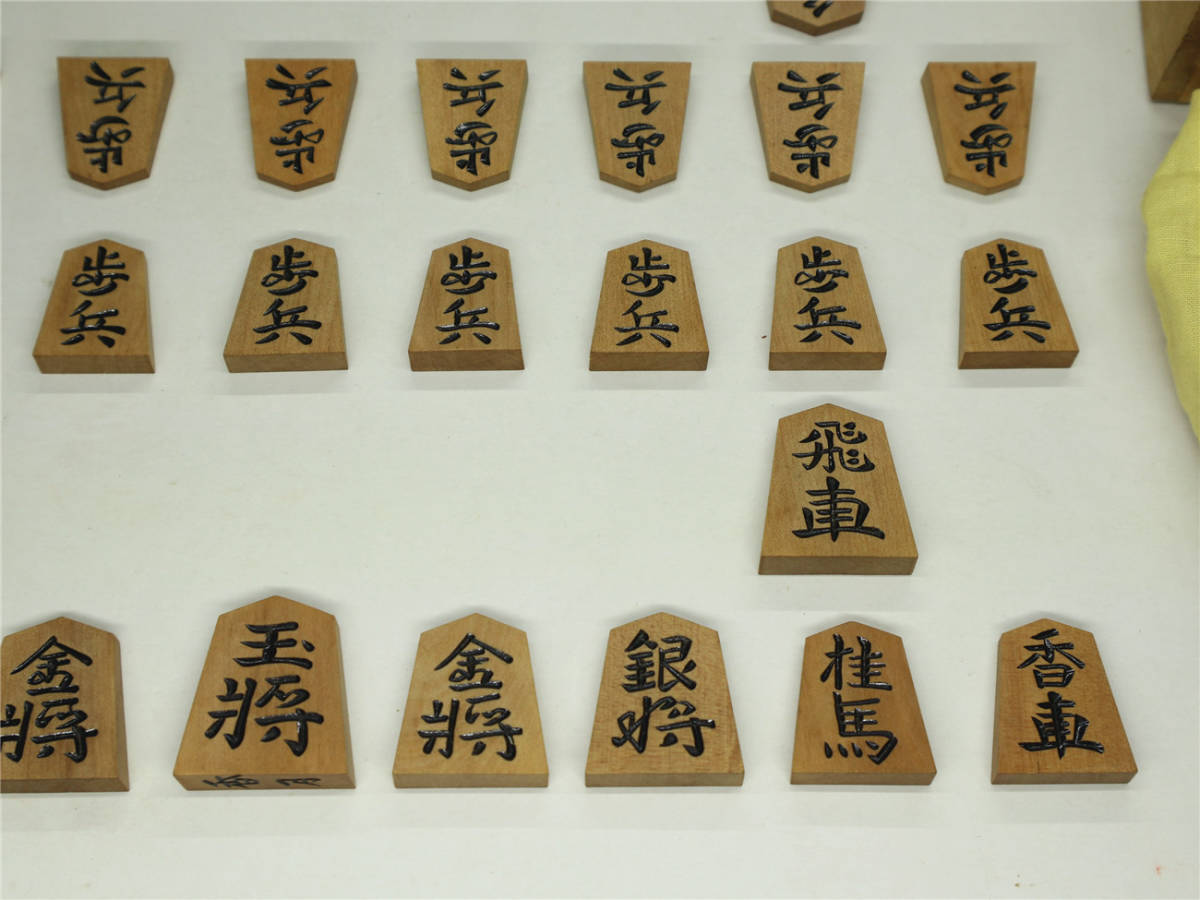 歩兵 歩兵 歩兵 歩兵 歩兵 歩兵
歩兵 歩兵 歩兵 歩兵 歩兵 歩兵
飛車
金將 玉將 金將 銀將 桂馬 香車